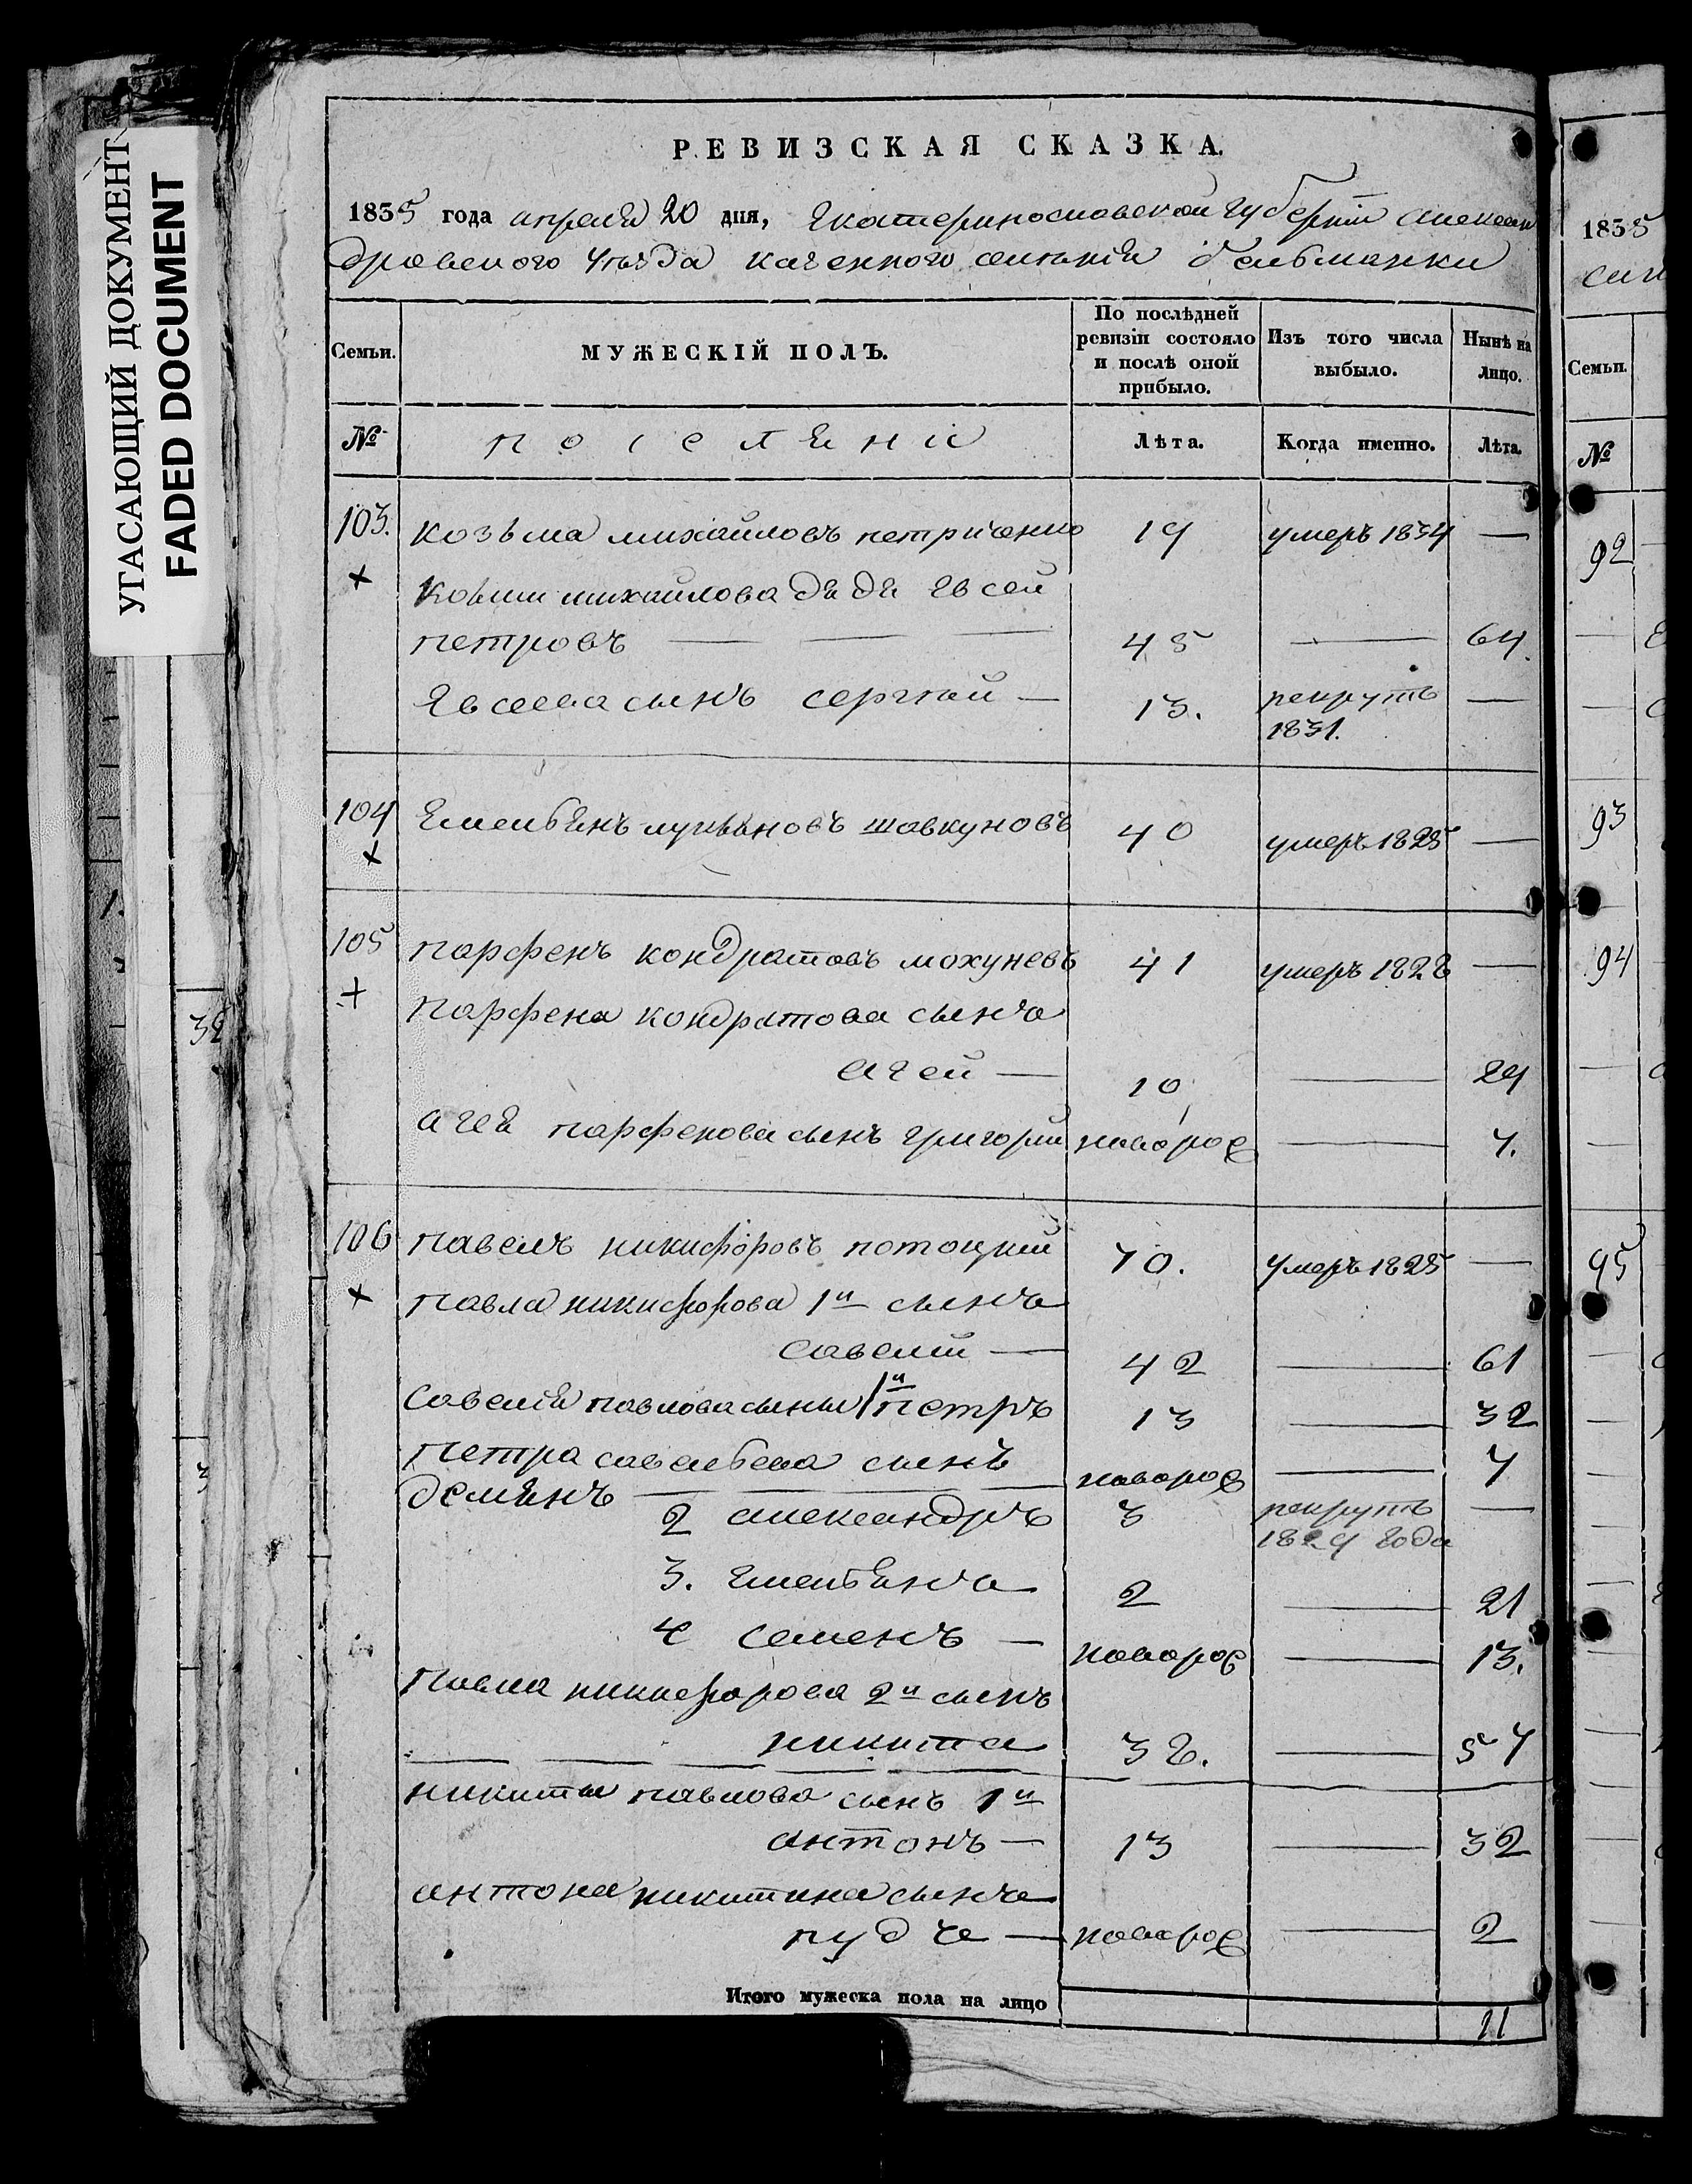 УГАСАЮЩИЙ ДОКУМЕНТ
FADED DOCUMENT
РЕВИЗСКАЯ СКАЗКА.
1835 года апреля 20 дня, Екатеринославской губерніи Алексан
дровского уѣзда казенного селенія Бельманки
Семьи.
МУЖЕСКІЙ ПОЛЪ.
По послѣдней ревизіи состояло и послѣ оной прибыло.
Изъ того числа выбыло.
Нынѣ на лицо.
№
поселяни
Лѣта.
Когда именно.
Лѣта.
103. козьма михайловъ петриченко 19 умеръ 1834 —
козьми михайлова дядя Евсей
петровъ — 45 — 64.
Евсеева сынъ сергѣй — 13. рекрутъ —
1831.
104 Емельянъ лукьяновъ шавкуновъ 40 умеръ 1825 —
105 парфенъ кондратовъ мохуневъ 41 умеръ 1828 —
парфена кондратова сынъ
агей — 10 — 29
агея парфенова сынъ григорий новорож — 7.
106 павелъ никифоровъ потоцкий 70. умеръ 1825 —
павла никифорова 1й сынъ
савелий — 42 — 61
савелія павлова сыны 1й петръ 13 — 32
петра савельева сынъ новорож — 7
демянъ
2 александръ 3 рекрутъ —
1829 года
3. Емельянъ 2 — 21
4 семенъ — новорож — 13.
павла никифорова 2й сынъ
никита 38. — 57
никиты павлова сынъ 1й
антонъ — 13 — 32
антона никитина сынъ
пудъ — новорож — 2
Итого мужеска пола на лицо 11
1835
Семьи.
№
92
93
94
95